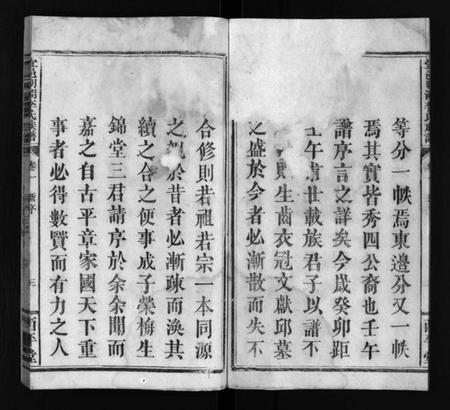 等分一帙焉東邊分又一帙
焉其實皆秀四公裔也壬午
譜序言之詳矣今歲癸卯距
壬午廿載族君子以譜不
則生齒衣冠文獻邱墓
之盛於今者必漸散而失不
合修則若祖若宗一本同源
之親於昔者必漸疎而渙其
續之合之便事成子榮梅生
錦堂三君請序於余余聞而
嘉之自古平章家國天下重
事者必得數賢而有力之人
卷一
新序
三